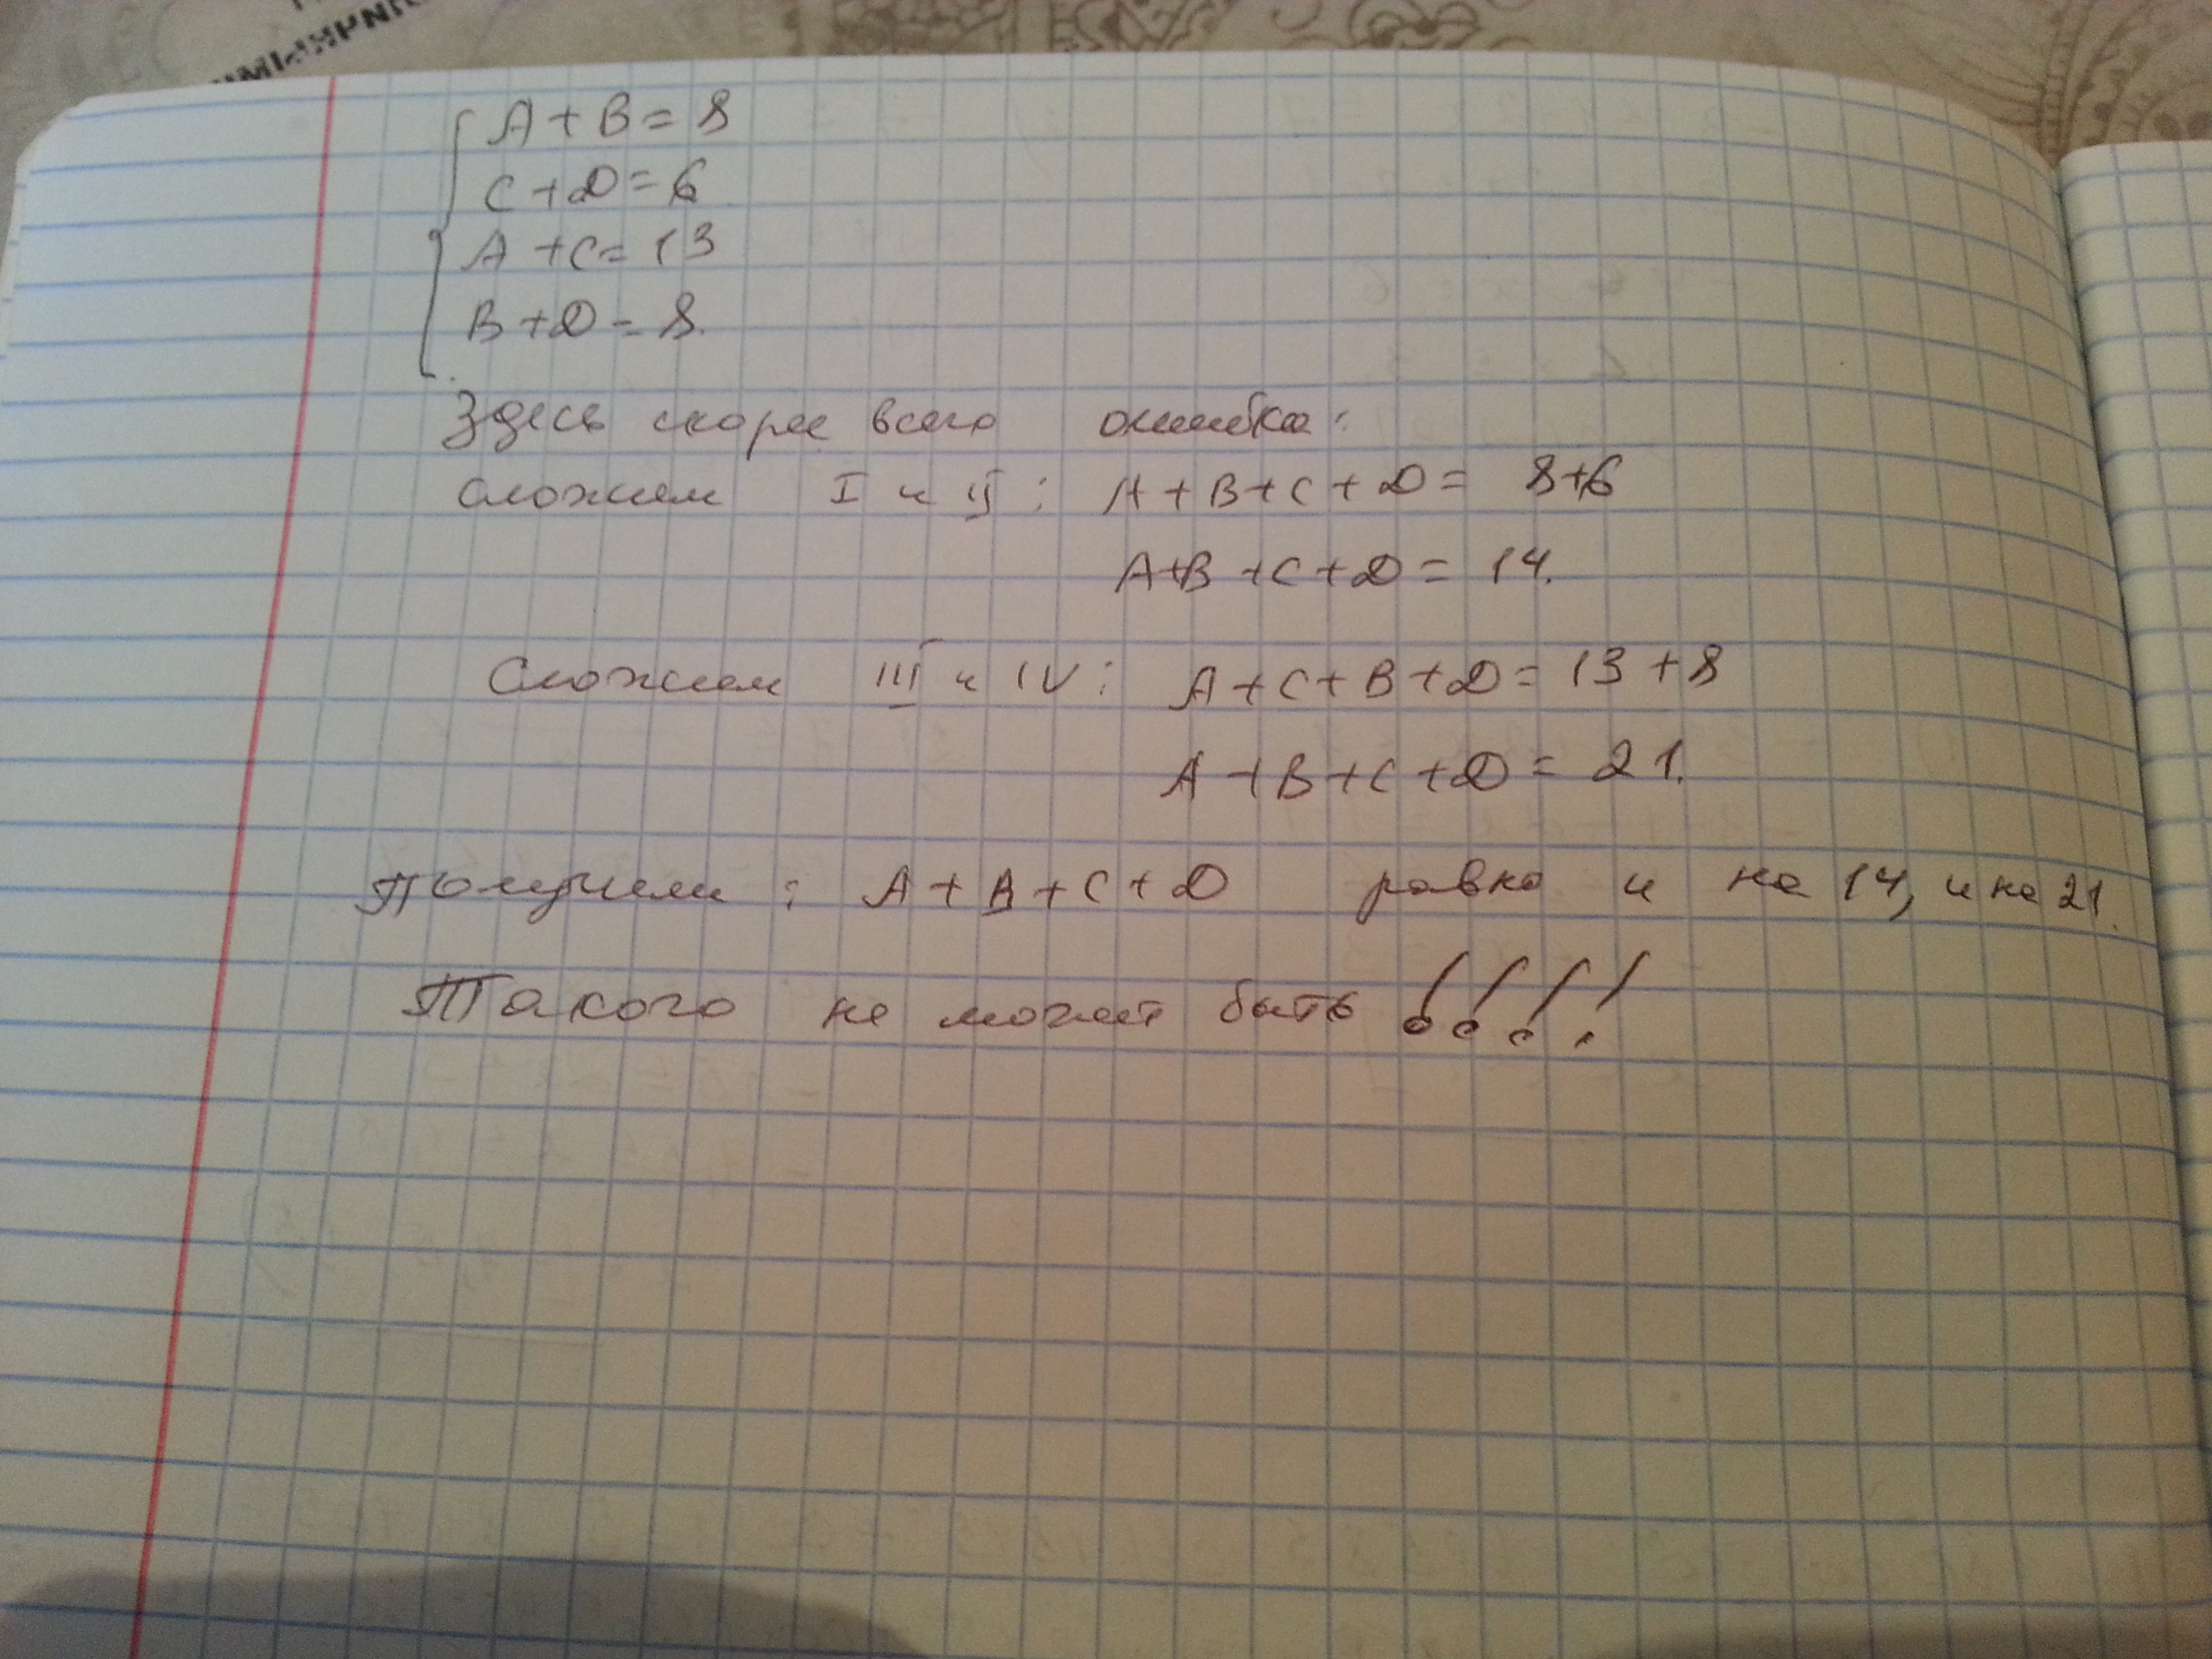 A + B = 8
C + D = 6
A + C = 13
B + D = 8.
Здесь скорее всего ошибка:
Сложим I и II: A + B + C + D = 8+6
A+B + C + D = 14.
Сложим III и IV: A + C + B + D = 13 + 8
A + B + C + D = 21.
Получили: A + B + C + D равно и на 14, и на 21.
Такого не может быть!!!!